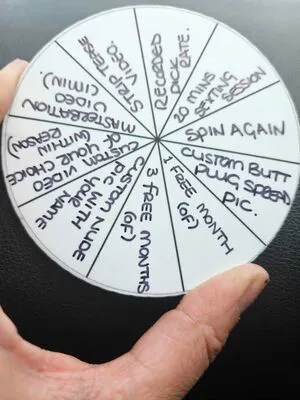 STRIP TEASE
VIDEO.
RECORDED
DICK
RATE.
20 MINS
SEXTING
SESSION
SPIN AGAIN
CUSTOM BUTT
PLUG SPREAD
PIC.
1 FREE MONTH
(OF)
3 FREE MONTHS
(OF)
CUSTOM NUDE
PIC WITH
YOUR NAME
CUSTOM VIDEO
OF YOUR CHOICE
(WITHIN
REASON)
MASTERBATION
VIDEO
(1MIN).